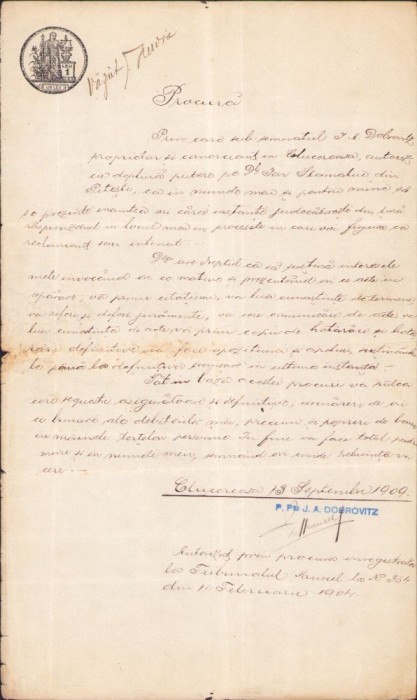 Văzut
Procură
Prin care sub semnatul J. A. Dobrovitz
proprietar și comerciant în Ciucoreasa, autorez
cu deplină putere pe Dl Stamatiu din
Pitești, ca în numele meu și pentru mine să
se prezinte înaintea ori cărei instanțe judecătorești din țară
în locul meu în procesele în care voi figura ca
reclamant sau intimat. —
Dsa are dreptul ca să susțină interesele
mele invocând ori ce și prezentând ori ce acte în
apărare; va primi citațiuni, va lua cunoștință de termene
va referi și deferi jurăminte, va cere comunicare de acte; va
lua cunoștință de acte va primi copii de hotărâre și
definitive va face opozițiuni și apeluri, susținându-
le până la definitiva în ultima instanță. —
Tot în baza acestei procuri va putea
cere sechestre asiguratoare și definitive, urmăriri de ori
ce a debitorilor mei, precum și popriri de bani
în mâinile terțelor persoane. În fine va face totul pentru
mine și în numele meu, semnând ori unde trebuința va
cere. —
Ciucoreasa 13 Septembre 1909.
P. Pa J. A. DOBROVITZ
Autorizat prin procura înregistrată
la Tribunalul la No 354
din 11 Februarie 1904